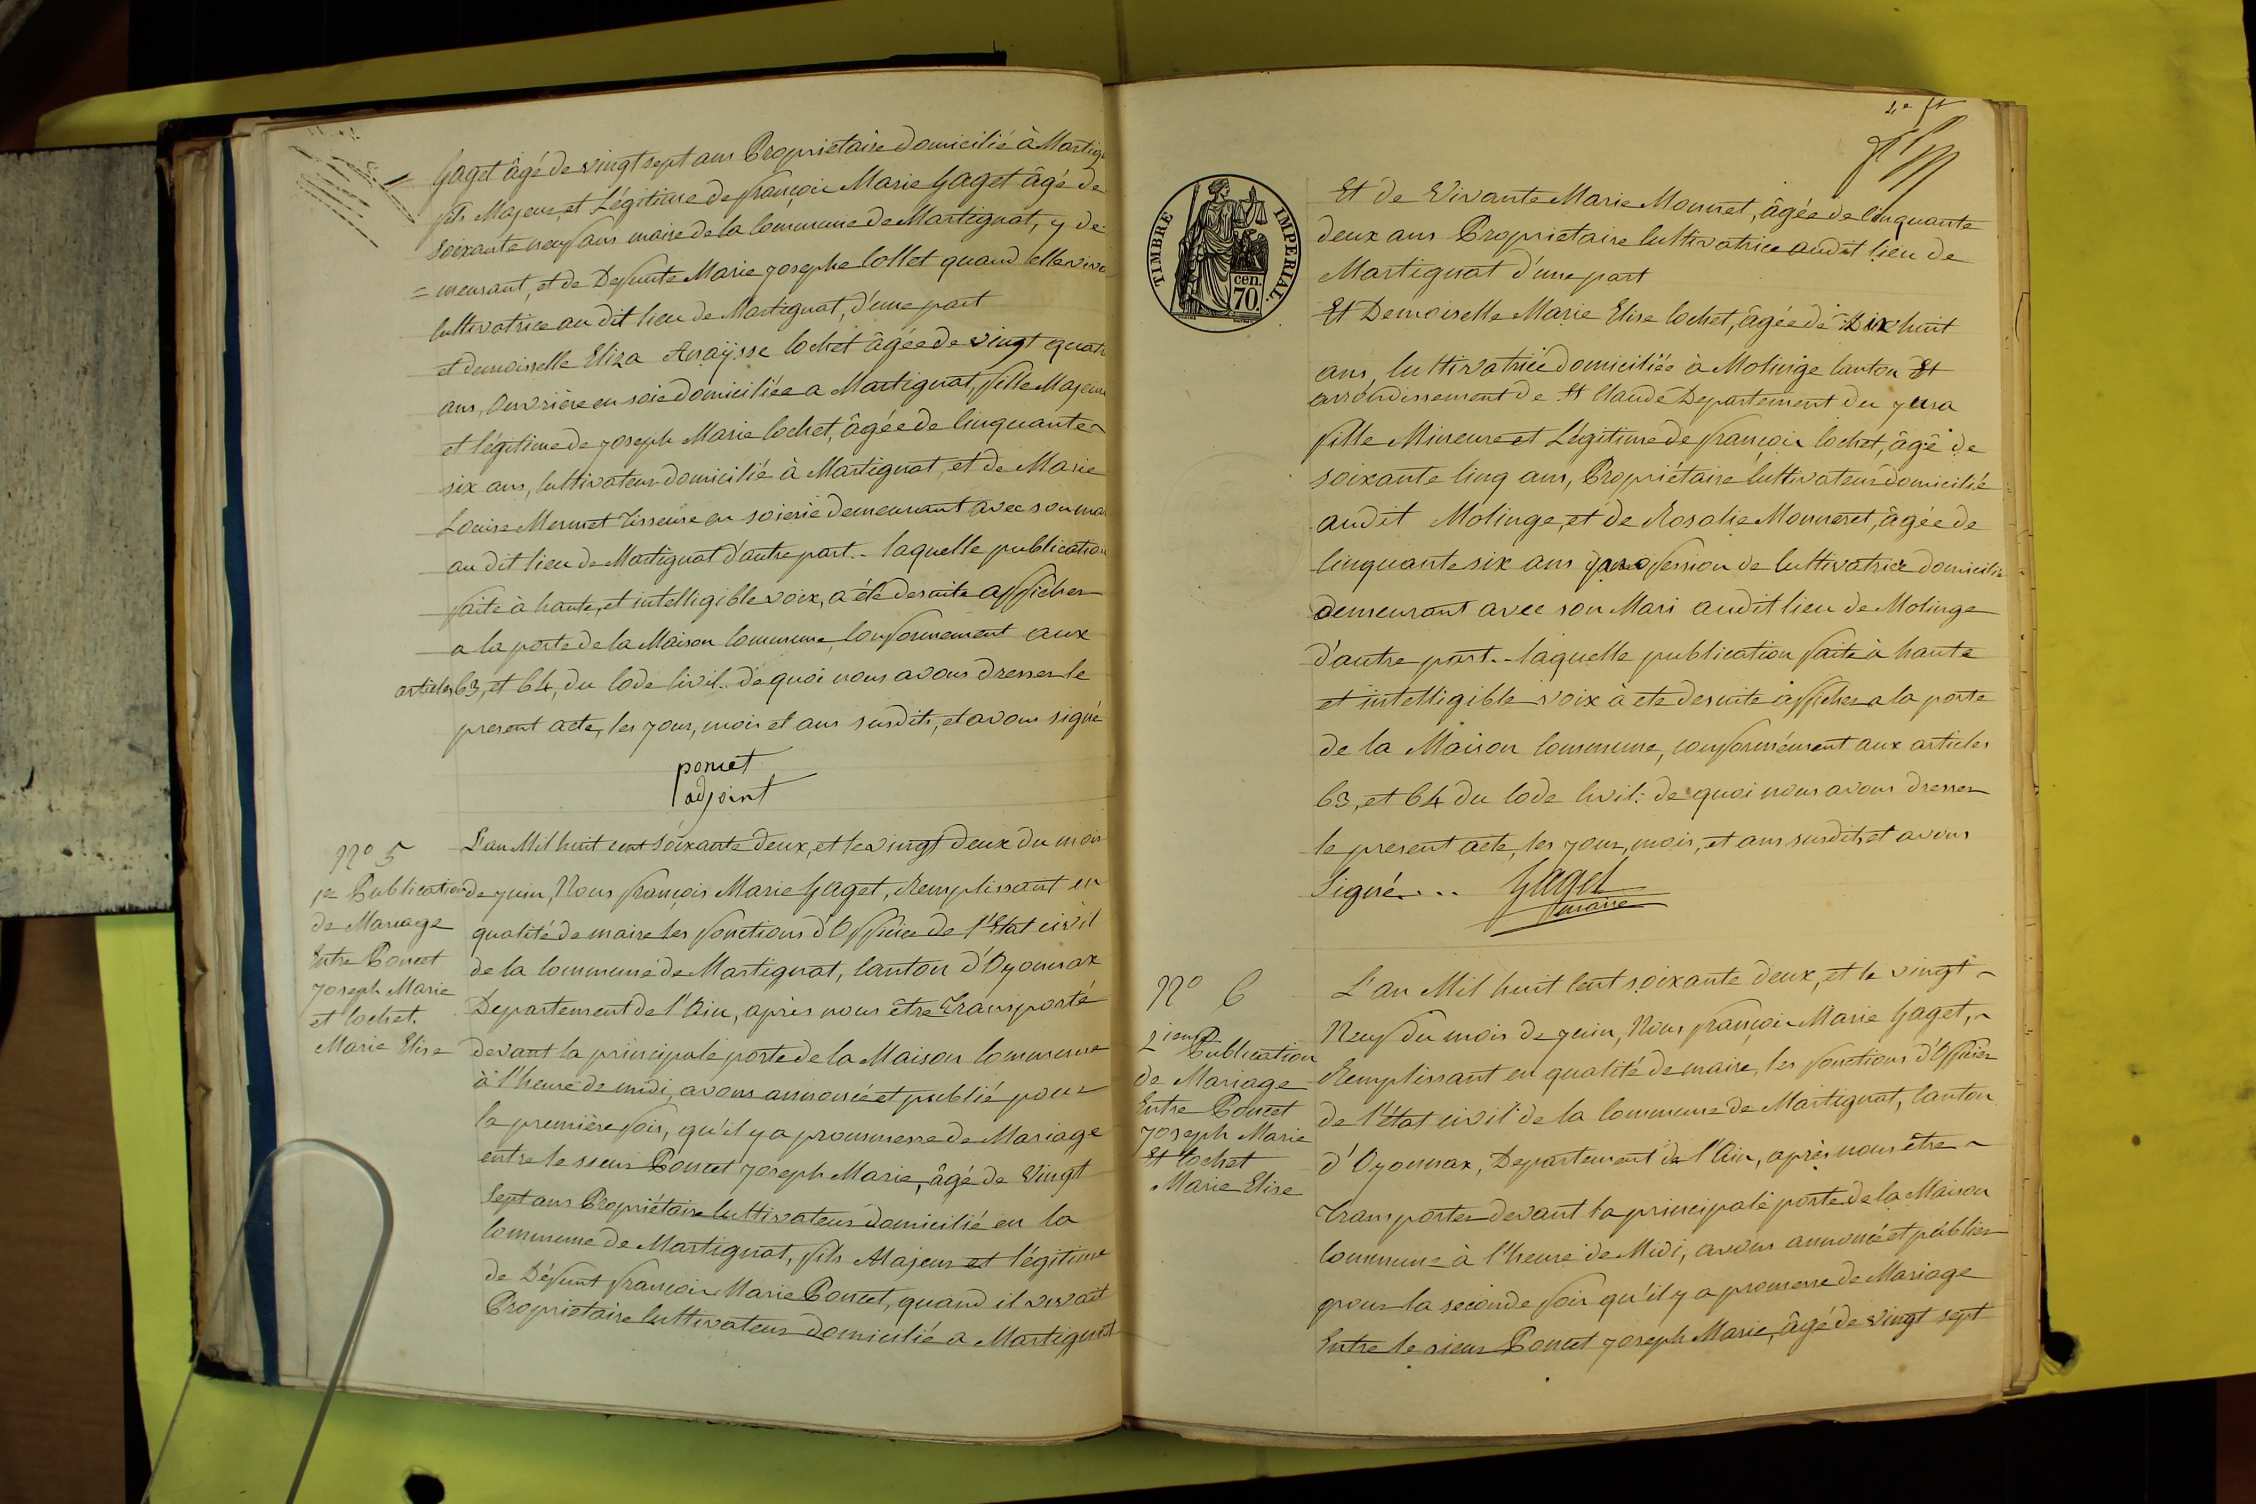 Gaget âgé de vingt sept ans Propriétaire domicilié à Martig
fils Majeur, et Légitime de françois Marie Gaget âgé de
soixante neuf ans maire de la Commune de Martignat, y de-
=meurant, et de Defunte Marie josephe Collet quand elle viva
Cultivatrice au dit lieu de Martignat, d'une part
et demoiselle Eliza Anaïsse Cochet âgée de vingt quatr
ans, Ouvrière en soie domiciliée a Martignat, fille Majeure
et légitime de joseph Marie Cochet, âgée de Cinquante
six ans, Cultivateur domicilié à Martignat, et de Marie
Louise Mermet Tisseuse en soierie demeurant avec son ma
au dit lieu de Martignat d'autre part. - laquelle publication
faite à haute, et intelligible voix, a été de suite afficher
a la porte de la Maison Commune, Conformement aux
articles 63, et 64, du Code Civil. de quoi nous avons dresser le
present acte, les jour, mois et ans susdits, et avons signé
poncet
adjoint
N° 5
1re Publication
de Mariage
Entre Poncet
joseph Marie
et Cochet.
Marie Elise
L'an Mil huit cent soixante deux, et le vingt deux du mois
de juin, Nous françois Marie Gaget, Remplissant en
qualité de maire les fonctions d'Officier de l'Etat civil
de la Commune de Martignat, Canton d'Oyonnax
Departement de l'Ain, après nous être Transporté
devant la principale porte de la Maison Commune
à l'heure de midi, avons annoncé et publié pour
la première fois, qu'il y a prommesse de Mariage
entre le sieur Poncet joseph Marie, âgé de Vingt
Sept ans Propriétaire Cultivateur domicilié en la
Commune de Martignat, fils Majeur et légitime
de Défunt françois Marie Poncet, quand il vivait
Propriétaire Cultivateur domicilié a Martignat
TIMBRE IMPERIAL.
cen.
70.
Et de Vivante Marie Monnet, âgée de Cinquante
deux ans Propriétaire Cultivatrice audit lieu de
Martignat d'une part
Et Demoiselle Marie Elise Cochet, âgée de Dix huit
ans, Cultivatrice domiciliée à Molinge Canton Et
arrondissement de St Claude Departement du jura
fille Mineure et Légitime de françois Cochet, âgé de
soixante Cinq ans, Propriétaire Cultivateur domicilié
audit Molinge, et de Rosalie Monneret, âgée de
Cinquante six ans profession de Cultivatrice domicilié
demeurant avec son Mari audit lieu de Molinge
d'autre part. - laquelle publication faite à haute
et intelligible voix à été de suite afficher a la porte
de la Maison Commune, conformément aux articles
63, et 64 du Code Civil: de quoi nous avons dresser
le present acte, les jour, mois, et ans susdits, et avons
Signé... Gaget
maire
N° 6
2ieme Publication
de Mariage
Entre Poncet
joseph Marie
Et Cochet
Marie Elise
L'an Mil huit Cent soixante deux, et le vingt
Neuf du mois de juin, Nous françois Marie Gaget,
Remplissant en qualité de maire, les fonctions d'Officier
de l'état civil de la Commune de Martignat, Canton
d'Oyonnax, Departement de l'Ain, après nous être
Transporter devant la principale porte de la Maison
Commune à l'heure de Midi, avons annoncé et publier
pour la seconde fois qu'il y a promesse de Mariage
Entre le sieur Poncet joseph Marie, âgé de vingt sept